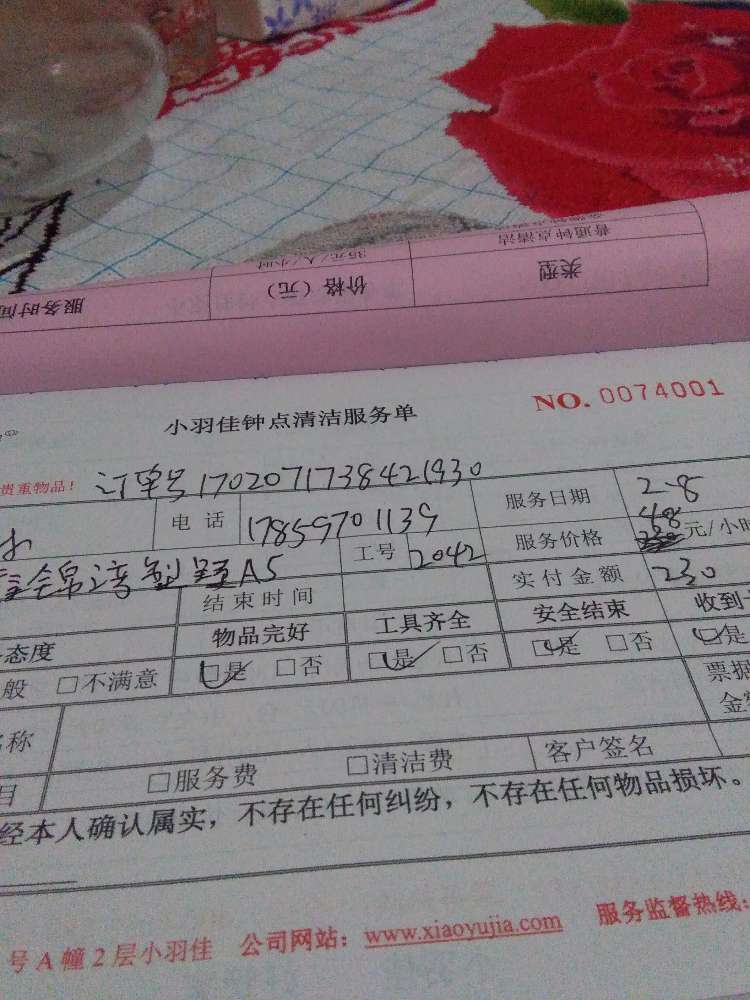 普通钟点清洁 35元/人/小时
类型 价格（元） 服务时间
小羽佳钟点清洁服务单 NO. 0074001
贵重物品！ 订单号1702071738421930
电话 17859701139 服务日期 2-8
工号 2042 服务价格 48 元/小时
A5
结束时间 实付金额 230
态度 物品完好 工具齐全 安全结束 收到
般 □不满意 □是 □否 □是 □否 □是 □否 □是
称 票据
金
目 □服务费 □清洁费 客户签名
经本人确认属实，不存在任何纠纷，不存在任何物品损坏。
号A幢2层小羽佳 公司网站：www.xiaoyujia.com 服务监督热线：